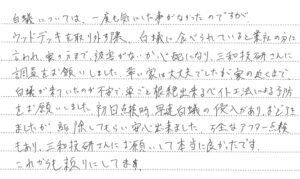 白蟻については、一度も気にした事がなかったのですが
ウッドデッキを取り外す際、白蟻に食べられていると業者の方に
言われ、家の方まで、被害がないか心配になり、三和技研さんに
調査をお願いしました。幸い家は大丈夫でしたが家の近くまで、
白蟻が来ていたのが不安で、巣ごと根絶出来るベイト工法による予防
をお願いしました。初回点検時、早速白蟻の侵入があり、おどろき
ましたが、駆除してもらい安心出来ました。万全なアフター点検
もあり、三和技研さんにお願いして本当に良かったです。
これからも頼りにしてます。